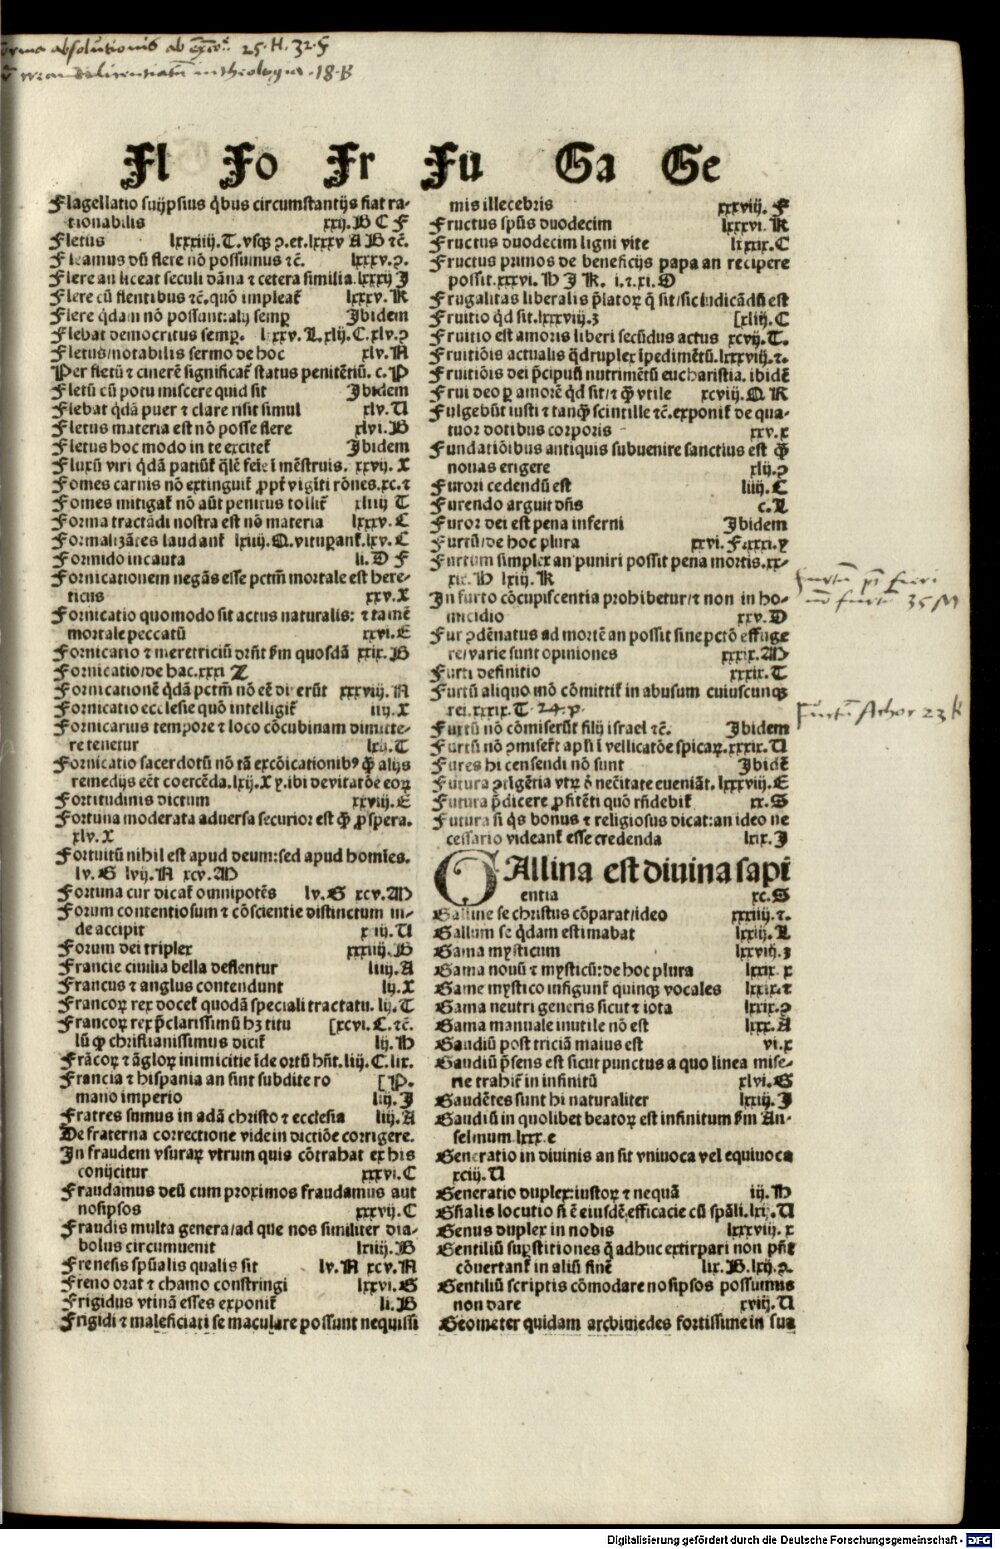 absolutionis ab 25. H. 32. F
in theologia. 18. B
Fl Fo Fr Fu Ga Ge
Flagellatio suijpsius q̇bus circumstantijs fiat ra-
tionabilis xxij. B C F
Fletus lxxxiiij. T. vsq̃ ꝛ. et. lxxxv A B ⁊c̃.
Fleamus dũ flere nõ possumus ⁊c̃. lxxxv. ꝛ.
Flere an liceat seculi dãna ⁊ cetera similia. lxxxij J
Flere cũ flentibus ⁊c̃. quõ impleat᷑ lxxxv. K
Flere q̇dam nõ possunt: alij semꝑ Ibidem
Flebat democritus semꝑ. lxxv. L. xlij. C. xlv. ꝛ
Fletus/notabilis sermo de hoc xlv. N
Per fletũ ⁊ cinerẽ significat᷑ status penitẽtiũ. c. P
Fletũ cũ potu miscere quid sit Ibidem
Flebat q̇dã puer ⁊ clare risit simul xlv. U
Fletus materia est nõ posse flere xlvi. B
Fletus hoc modo in te excitet᷑ Ibidem
Fluxũ viri q̇dã patiũt᷑ q̃lẽ feie ĩ mẽstruis. xxvij. X
Fomes carnis nõ extinguit᷑ ꝓpt᷑ viginti rõnes. xc. ⁊
Fomes mitigat᷑ nõ aũt penitus tollit᷑ xliiij T
Forma tractãdi nostra est nõ materia lxxxv. C
Formalizãtes laudant᷑ lxiij. Q. vituꝑant᷑. lxv. C
Formido incauta li. D F
Fornicationem negãs esse pctm̃ mortale est here-
ticus xxv. X
Fornicatio quomodo sit actus naturalis: ⁊ tamẽ
mortale peccatũ xxvi. E
Fornicatio ⁊ meretriciũ dr̃nt ẜm quosdã xxix. B
Fornicatio/de hac. xxxi Z
Fornicationẽ q̇dã pctm̃ nõ eẽ dixerũt xxxviij. N
Fornicatio ecclesie quõ intelligit᷑ iiij. X
Fornicarius tempore ⁊ loco cõcubinam dimitte-
re tenetur lxij. T
Fornicatio sacerdotũ nõ tã excõicationibꝰ q̃ alijs
remedijs eẽt coercẽda. lxij. X ꝛ. ibi de vitatõe eoꝝ
Fortitudinis dictum xxviij. E
Fortuna moderata adversa securior est q̃ ꝓspera.
xlv. X
Fortuitũ nihil est apud deum: sed apud homĩes.
lv. G lvij. N xcv. M
Fortuna cur dicat᷑ omnipotẽs lv. G xcv. M
Forum contentiosum ⁊ cõscientie distinctum in-
de accipit xiij. U
Forum dei triplex xxxiij. B
Francie ciuilia bella deflentur liiij. A
Francus ⁊ anglus contendunt lij. X
Francoꝝ rex docet᷑ quodã speciali tractatu. lij. T
Francoꝝ rex p̃clarissimũ hꝫ titu [xcvi. C. ⁊c̃.
lũ ꝙ christianissimus dicit᷑ lij. H
Frãcoꝝ ⁊ ãgloꝝ inimicitie ĩde ortũ hñt. liij. C. lix.
Francia ⁊ hispania an sint subdite ro [P.
mano imperio liij. J
Fratres sumus in adã christo ⁊ ecclesia liij. A
De fraterna correctione vide in dictiõe corrigere.
In fraudem vsuraꝝ vtrum quis cõtrahat ex his
conijcitur xxxvi. C
Fraudamus deũ cum proximos fraudamus aut
nosipsos xxxvij. C
Fraudis multa genera/ad que nos similiter dia-
bolus circumuenit lxiij. B
Frenesis sp̃ualis qualis sit lv. N xcv. N
Freno orat ⁊ chamo constringi lxxvi. G
Frigidus vtinã esses exponit᷑ li. B
Frigidi ⁊ maleficiati se maculare possunt nequissi
mis illecebris xxxviij. F
Fructus sp̃us duodecim lxxxvi. K
Fructus duodecim ligni vite lxxix. C
Fructus primos de beneficijs papa an recipere
possit. xxxvi. H J K. i. ⁊. xi. D
Frugalitas liberalis p̃latoꝝ q̃ sit/sic iudicãdũ est
Fruitio q̇d sit. lxxxviij. ꝫ [xliij. C
Fruitio est amoris liberi secũdus actus xcvij. T.
Fruitiõis actualis q̇druplex ĩpedimẽtũ. lxxxviij. ⁊.
Fruitiõis dei p̃cipuũ nutrimẽtũ eucharistia. ibidẽ
Frui deo ꝑ amorẽ q̇d sit/⁊ q̃ vtile xcviij. Q. K
Fulgebũt iusti ⁊ tanq̃ scintille ⁊c̃. exponit᷑ de qua-
tuor dotibus corporis xxv. x
Fundatiõibus antiquis subuenire sanctius est q̃
nouas erigere xlij. ꝛ
Furori cedendũ est liij. C
Furendo arguit dñs c. L
Furor dei est pena inferni Ibidem
Furtũ/de hoc plura xxvi. F. xxxi. y
Furtum simplex an puniri possit pena mortis. xx-
xix. H lxiij. K
In furto cõcupiscentia prohibetur/⁊ non in ho-
micidio xxv. D
Fur ꝯdẽnatus ad mortẽ an possit sine pctõ effuge
re/varie sunt opiniones xxxix. M
Furti definitio xxxix. T
Furtũ aliquo mõ cõmittit᷑ in abusum cuiuscunq̃
rei. xxxix. T. 24. p.
Furtũ nõ cõmiserũt filij israel ⁊c̃. Ibidem
Furtũ nõ ꝯmiser̃t apl̃i ĩ vellicatõe spicaꝝ. xxxix. U
Fures hi censendi nõ sunt Ibidẽ
Futura ꝯtĩgẽtia vtꝝ d̃ necẽitate eueniãt. lxxxviij. E
Futura p̃dicere ꝓfitẽti quõ rñdebit᷑ xx. S
Futura si q̇s bonus ⁊ religiosus dicat: an ideo ne
cessario videant᷑ esse credenda lxix. J
GAllina est diuina sapi
entia xc. S
Galline se christus cõparat/ideo xxxiiij. ⁊.
Gallum se q̇dam estimabat lxxiij. L
Gama mysticum lxxviij. ꝫ
Gama nouũ ⁊ mysticũ: de hoc plura lxxix. x
Game mystico infigunt᷑ quinq̃ vocales lxxix. ⁊
Gama neutri generis sicut ⁊ iota lxxix. ꝛ
Gama manuale inutile nõ est lxxx. A
Gaudiũ post triciã maius est vi. x
Gaudiũ p̃sens est sicut punctus a quo linea mise-
rie trahit᷑ in infinitũ xlvi. G
Gaudẽtes sunt hi naturaliter lxxiij. J
Gaudiũ in quolibet beatoꝝ est infinitum ẜm An-
selmum. lxxx. e
Generatio in diuinis an sit vniuoca vel equiuoca
xciij. U
Generatio duplex: iustoꝝ ⁊ nequã iij. H
Gñalis locutio si ẽ eiusdẽ efficacie cũ sp̃ali. lxij. U
Genus duplex in nobis lxxxviij. x
Gentiliũ suꝑstitiones q̃ adhuc extirpari non pñt
cõuertant᷑ in aliũ finẽ lix. B. lxij. ꝛ.
Gentiliũ scriptis cõmodare nosipsos possumus
non dare xviij. U
Geometer quidam archimedes fortissime in sua
furtum fieri
furtum 35 M
Furtũ Achor 23 k
Digitalisierung gefördert durch die Deutsche Forschungsgemeinschaft - DFG